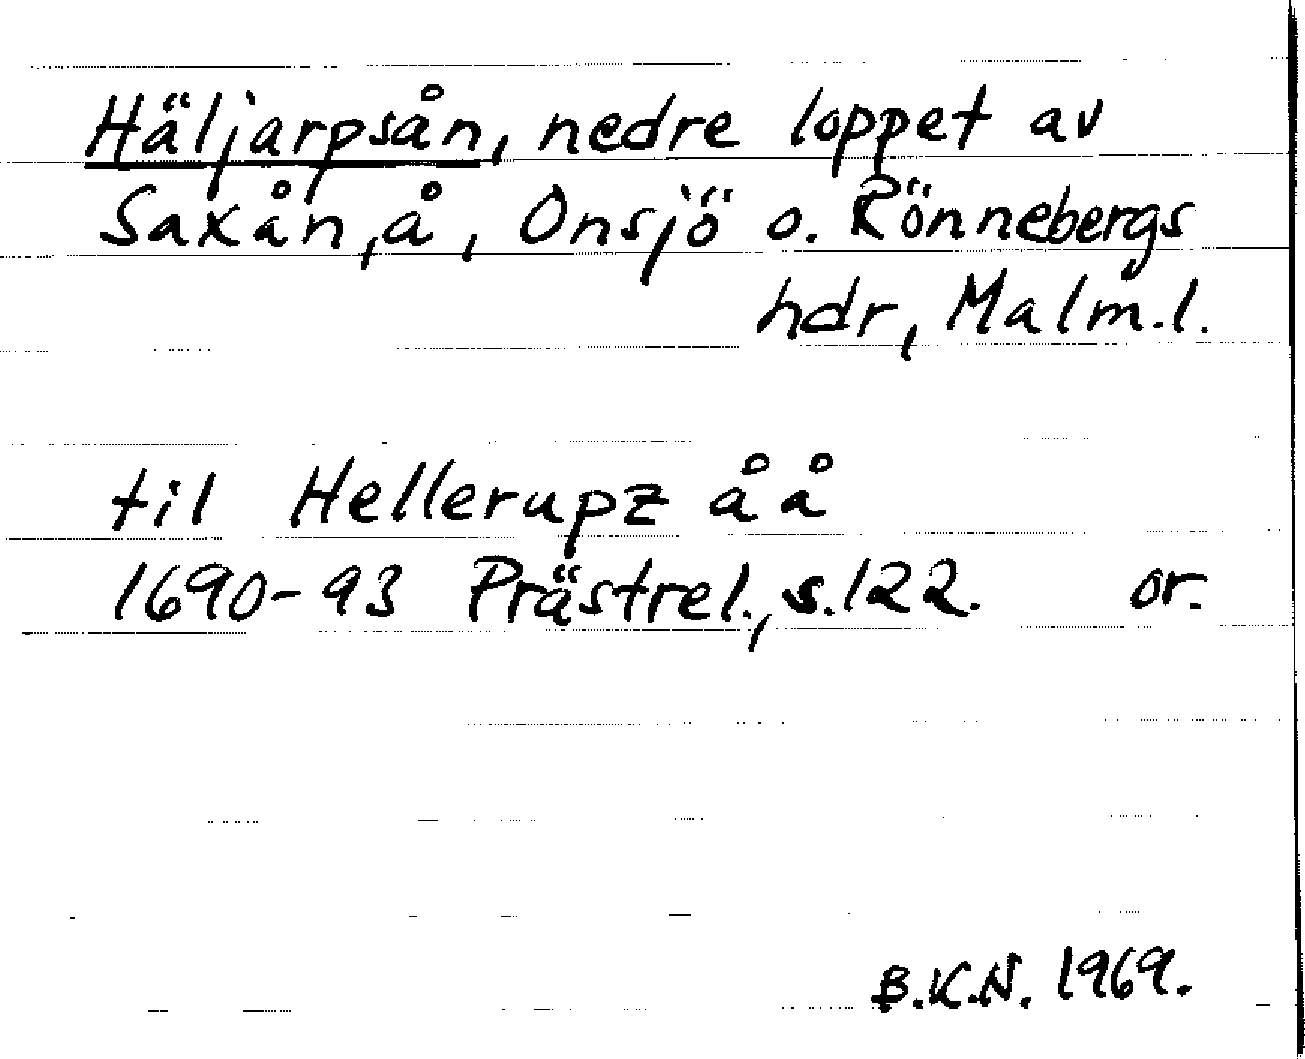 Häljarpsån, nedre loppet av
Saxån, å, Onsjö o. Rönnebergs
hdr, Malm.l.
til Hellerupz åå
1690-93 Prästrel., s.122. or.
B.K.N. 1969.